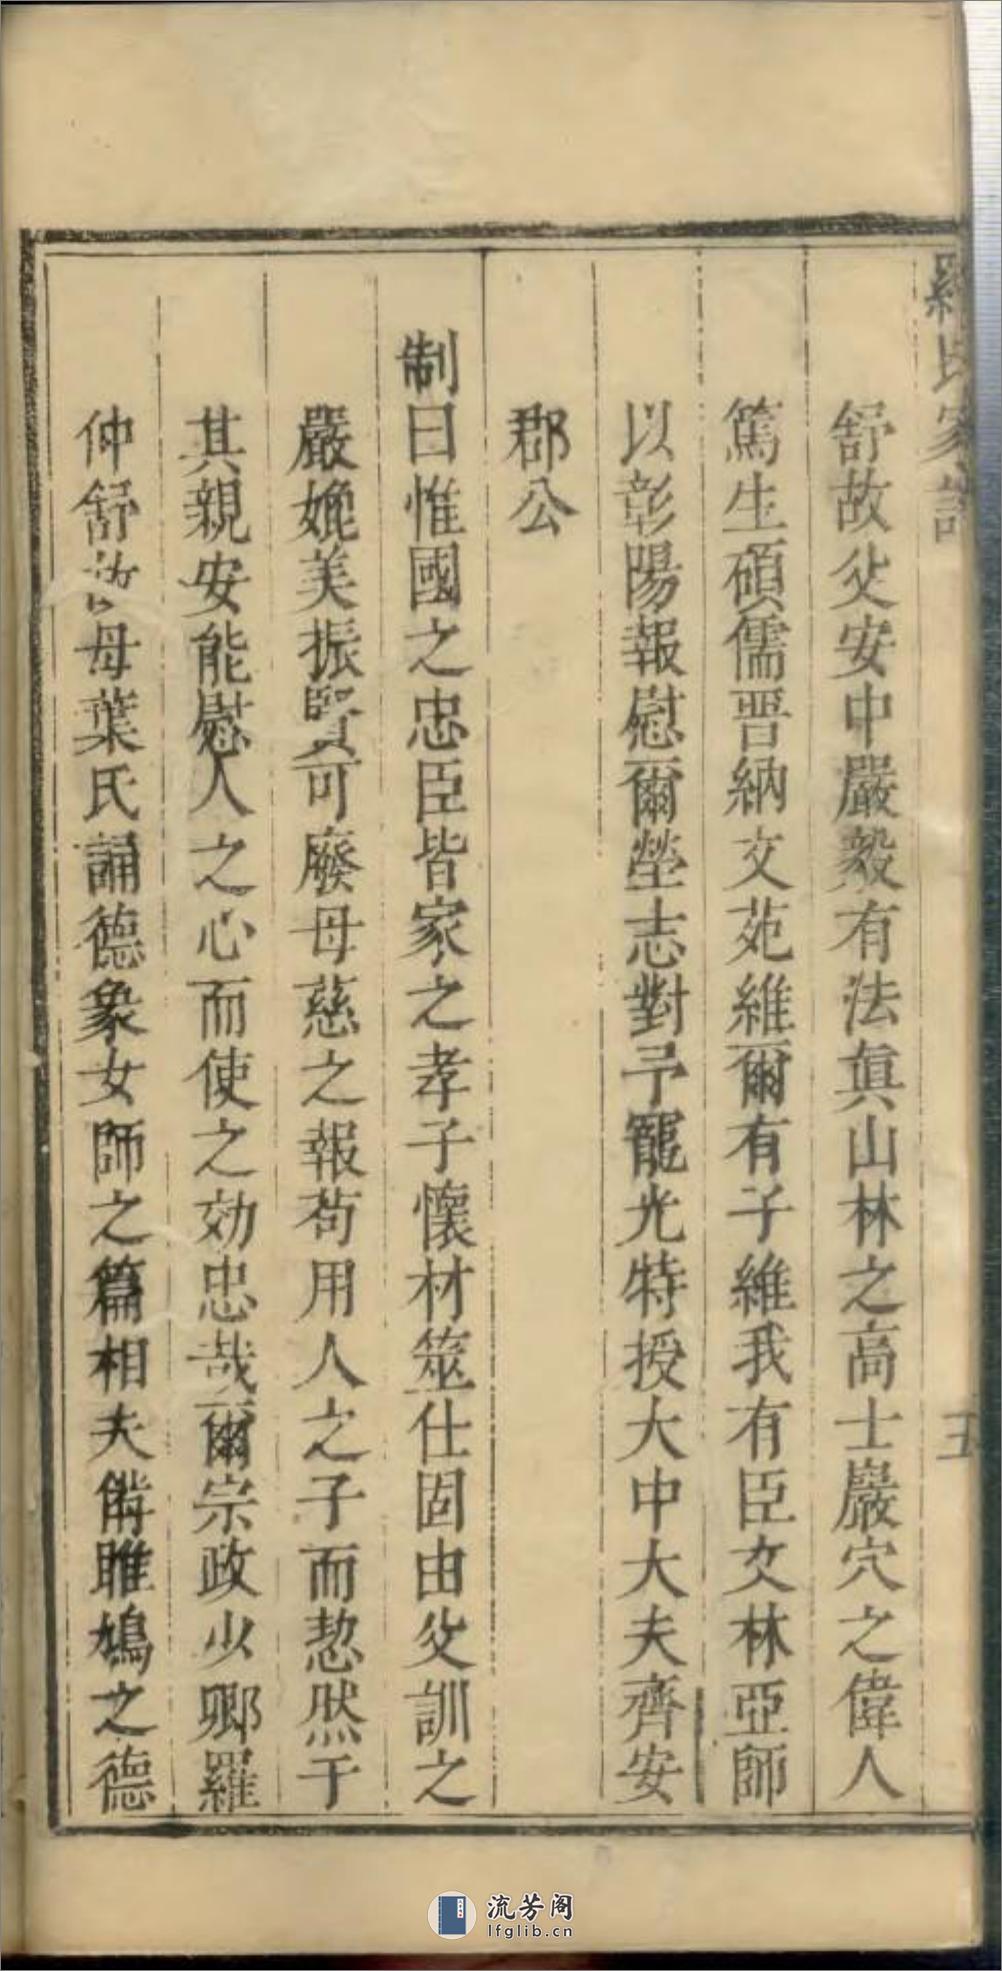 羅氏家譜
五
舒故父安中嚴毅有法真山林之高士巖穴之偉人
篤生碩儒晋納文苑維爾有子維我有臣文林亞師
以彰陽報慰爾塋志對予寵光特授大中大夫齊安
郡公
制曰惟國之忠臣皆家之孝子懷材筮仕固由父訓之
嚴娩美振賢可廢母慈之報苟用人之子而恝然于
其親安能慰人之心而使之効忠哉爾宗政少卿羅
仲舒故母葉氏誦德象女師之篇相夫儕雎鳩之德
流芳阁
lfglib.cn